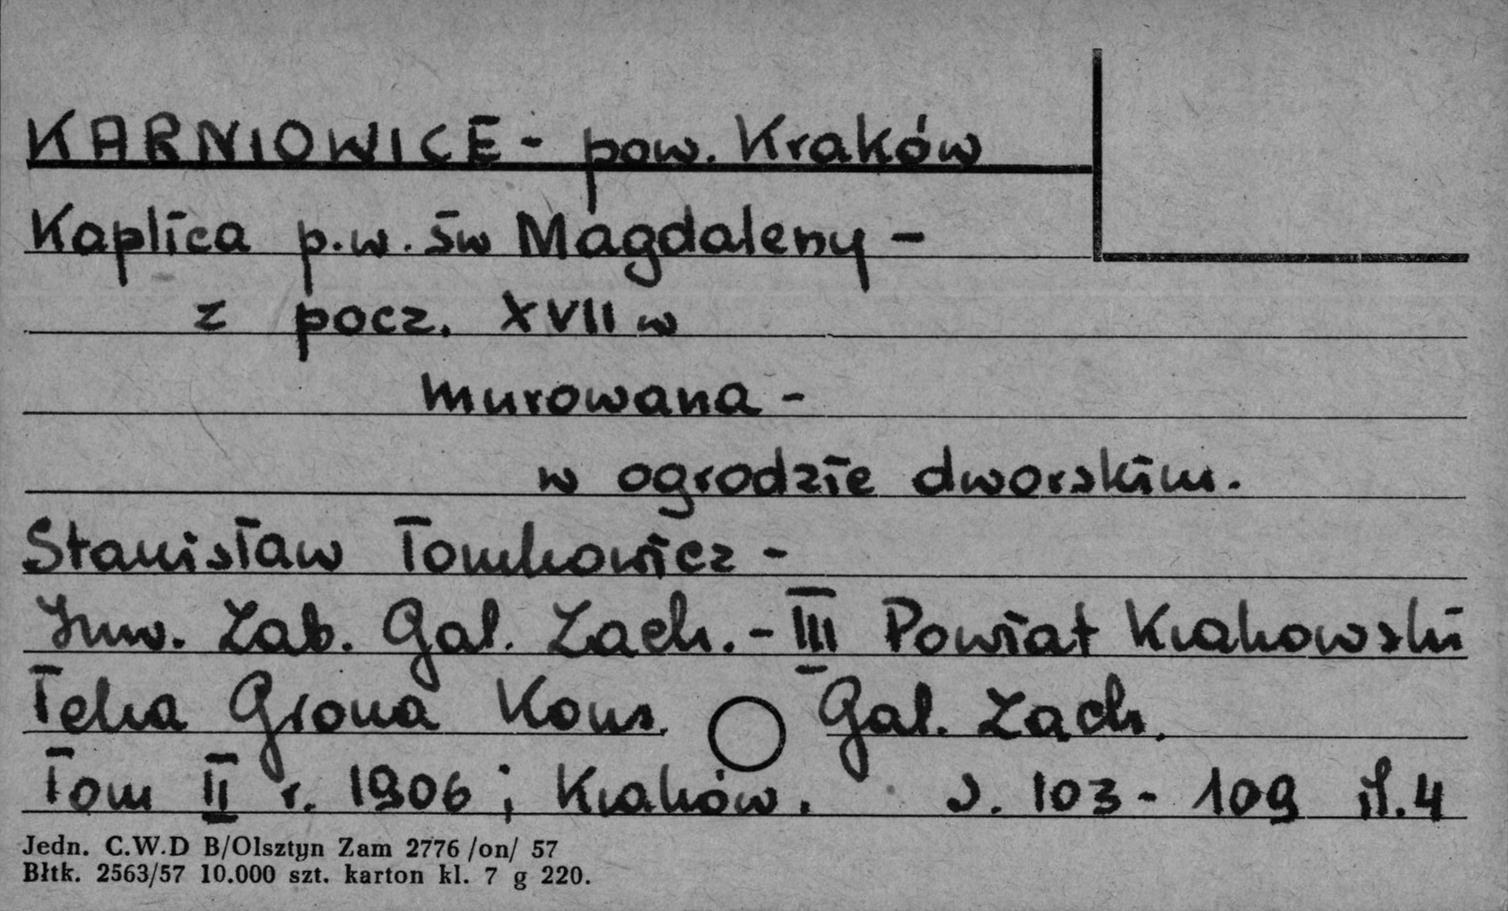 KARNIOWICE - pow. Kraków
Kaplica p.w. św Magdaleny -
z pocz. XVII w
murowana -
w ogrodzie dworskim.
Stanisław Tomkowicz -
Inw. Zab. Gal. Zach. - III Powiat Krakowski
Teka Grona Kons. Gal. Zach.
Tom II r. 1906; Kraków. s. 103 - 109 il. 4
Jedn. C.W.D B/Olsztyn Zam 2776 /on/ 57
Błtk. 2563/57 10.000 szt. karton kl. 7 g 220.